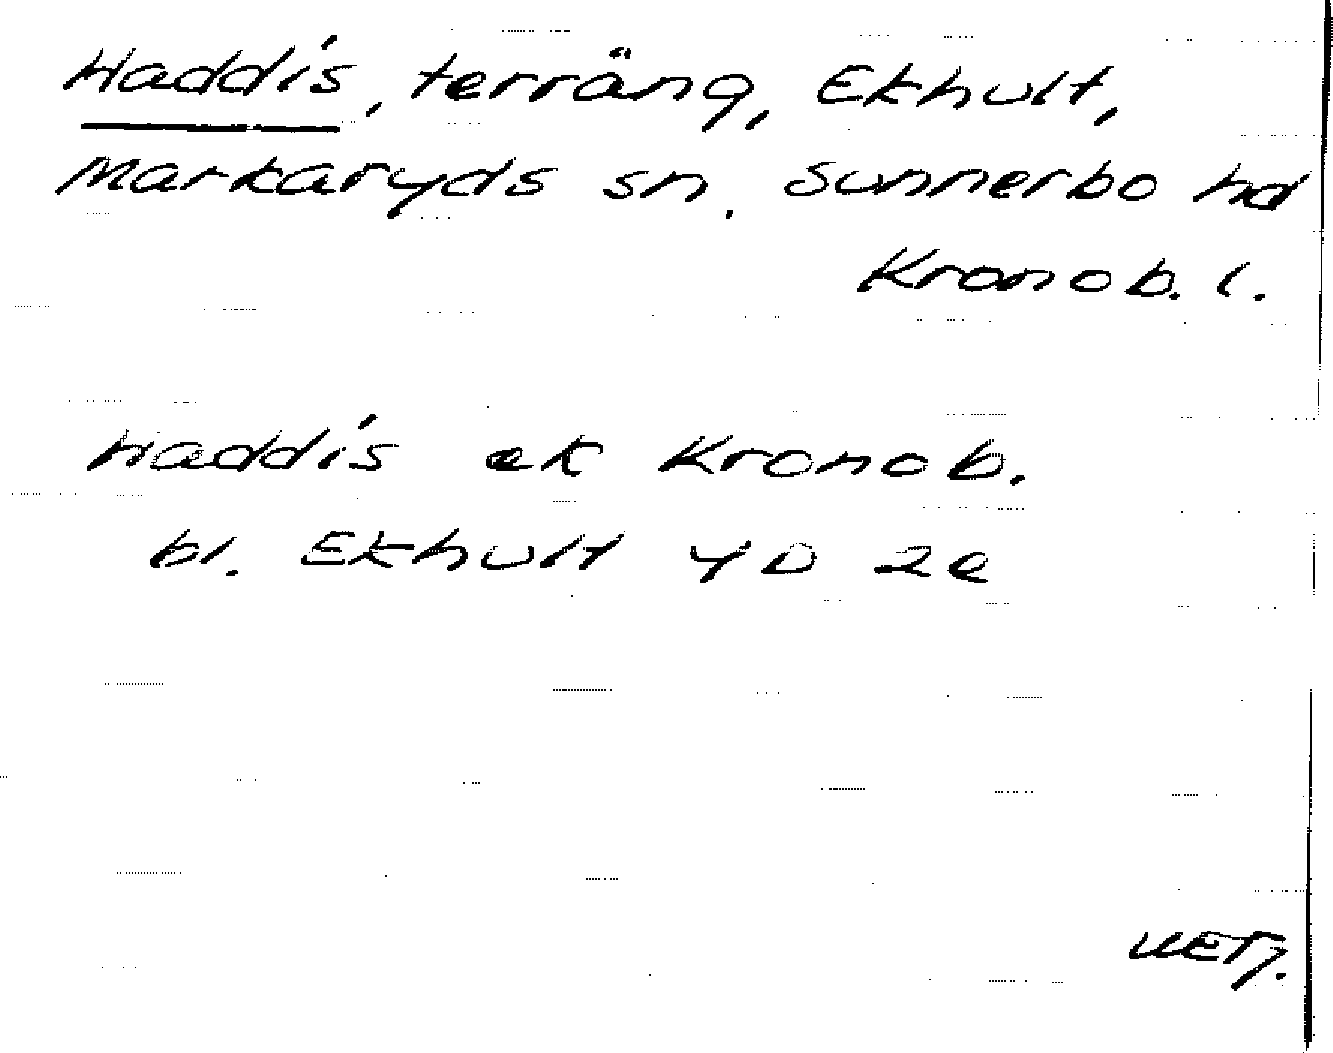 Haddis, terräng, Ekhult,
Markaryds sn. Sunnerbo hd
Kronob. l.
Haddis ek Kronob.
bl. Ekhult 4D 2e